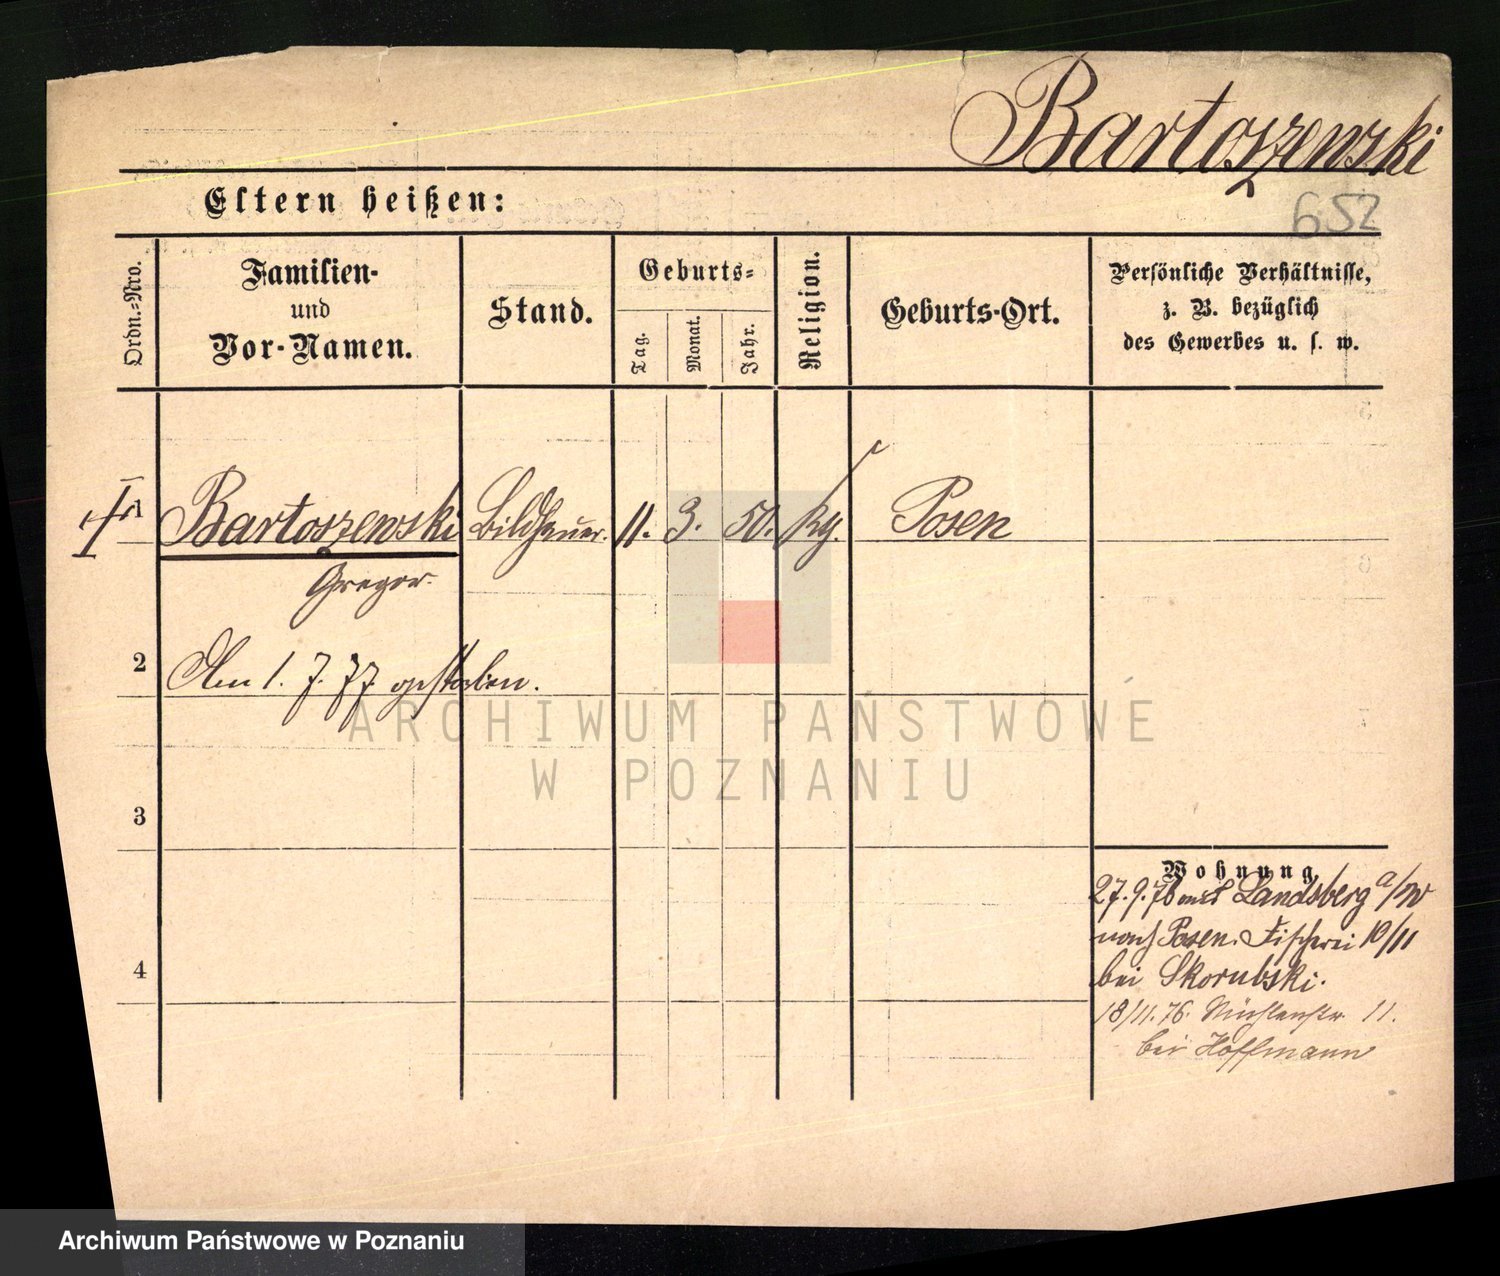 Bartoszewski
652
Eltern heißen:
Ordn.-Nro.
Familien-
und
Vor-Namen.
Stand.
Geburts-
Tag.
Monat.
Jahr.
Religion.
Geburts-Ort.
Persönliche Verhältnisse,
z. B. bezüglich
des Gewerbes u. s. w.
1
Bartoszewski Bildhauer. 11. 3. 50. Posen
Gregor.
2
Am 1. 7. 77. gestorben.
3
4
Wohnung
27.9.76 aus Landsberg a/W
nach Posen. Fischerei 10/11
bei Skorubski.
18/11.76. Mühlenstr. 11.
bei Hoffmann
ARCHIWUM PANSTWOWE
W POZNANIU
Archiwum Państwowe w Poznaniu